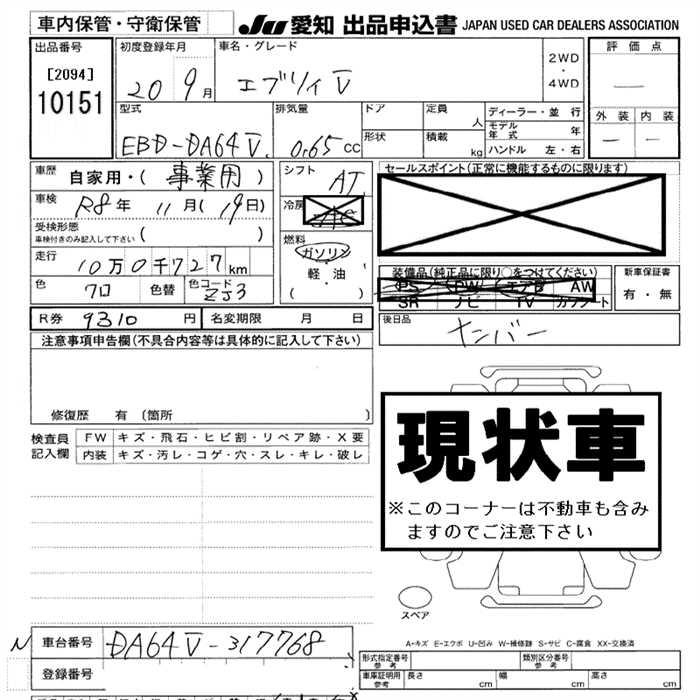 車内保管・守衛保管
JU 愛知 出品申込書 JAPAN USED CAR DEALERS ASSOCIATION
出品番号
[2094]
10151
初度登録年月
20 9月
車名・グレード
エブリィV
2WD
・
4WD
評価点
外装 内装
型式
EBD-DA64V
排気量
0.65 CC
ドア
形状
定員
人
積載
kg
ディーラー・並行
モデル年式 年
ハンドル 左・右
車歴 自家用・( 事業用 )
車検 R8年 11月(19日)
受検形態
車検付きのみ記入して下さい ( )
走行 10万0千727km
色 クロ 色替 色コード ZJ3
シフト AT
冷房
燃料
ガソリン
・
軽・油
( )
セールスポイント(正常に機能するものに限ります)
装備品(純正品に限り○をつけてください)
PS PW エアB AW
SR ナビ TV カワシート
新車保証書
有・無
R券 9310 円 名変期限 月 日
後日品 ナンバー
注意事項申告欄(不具合内容等は具体的に記入して下さい)
修復歴 有 (箇所 )
検査員記入欄
FW キズ・飛石・ヒビ割・リペア跡・X要
内装 キズ・汚レ・コゲ・穴・スレ・キレ・破レ
現状車
※このコーナーは不動車も含み
ますのでご注意下さい
スペア
A-キズ E-エクボ U-凹み W-補修跡 S-サビ C-腐食 XX-交換済
N 車台番号 DA64V-317768
登録番号
形式指定番号 参考
類別区分番号 参考
車庫証明用 参考 長さ cm 幅 cm 高さ cm